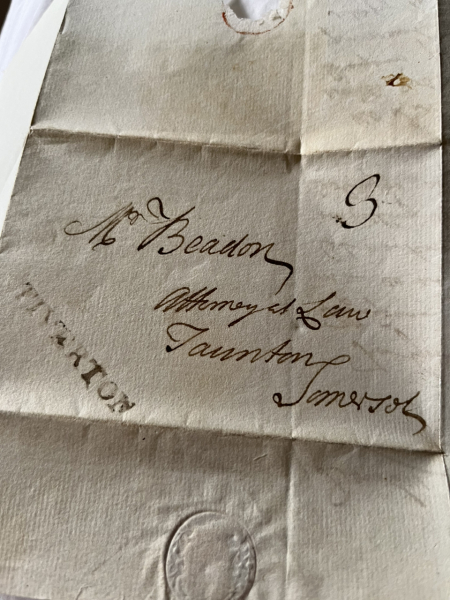 3
Mr Beadon
Attorney at Law
Taunton
Somerset
TIVERTON